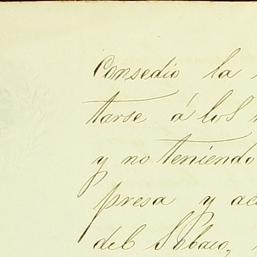 Consedio la
tarse á los
y no teniendo
presa y ac
del Sobaco,